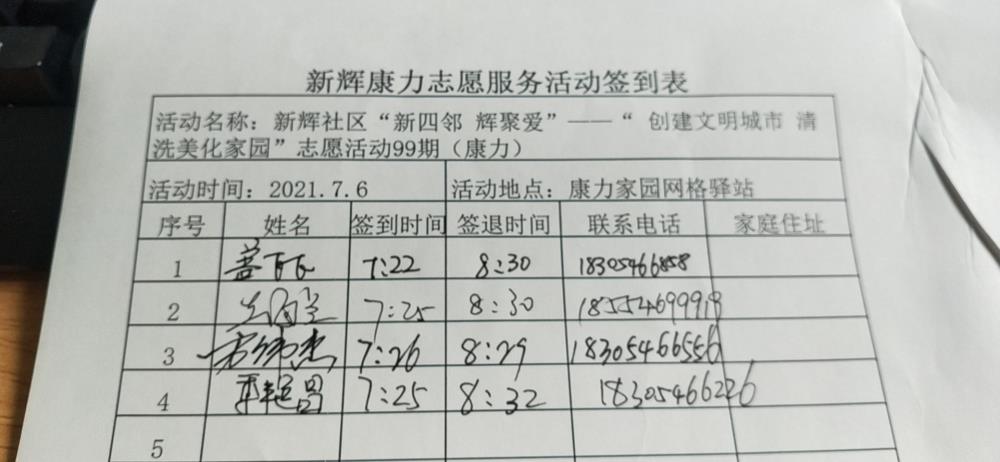 新辉康力志愿服务活动签到表
活动名称：新辉社区“新四邻 辉聚爱”——“ 创建文明城市 清
洗美化家园”志愿活动99期（康力）
活动时间：2021.7.6 活动地点：康力家园网格驿站
序号 姓名 签到时间 签退时间 联系电话 家庭住址
1 7:22 8:30 18305466858
2 7:25 8:30 18554699919
3 7:26 8:29 18305466556
4 7:25 8:32 18305466226
5